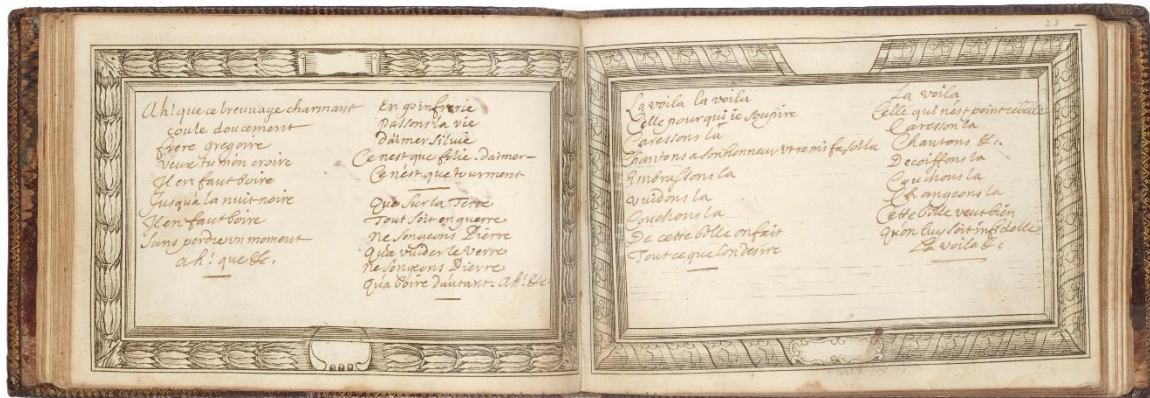 Ah! que ce breuvage charmant
coule doucement
frere gregoire
veux tu m'en croire
Il en faut boire
Jusqua la nuit noire
Il en faut boire
sans perdre un moment
Ah! que &c.
En goinfrerie
Passons la vie
Daimer Silvie
Ce nest que folie. daimer
Ce nest que tourment
Que sur la Terre
Tout soit en guerre
Ne songeons Pierre
Qua vuider le verre
ne songeons Pierre
Qua boire dautant. Ah! &c
23
La voila la voila
Celle pour qui ie soupire
Caressons la
Chantons a son honneur vt re mi fa sol la
Embrassons la
vuidons la
Couchons la
De cette belle on fait
Tout ce que lon desire
La voila
Celle qui nest point rebelle
Caressons la
Chantons &c.
Decoiffons la
Couchons la
Changeons la
Cette belle veut bien
Quon luy soit infidelle
La voila &c